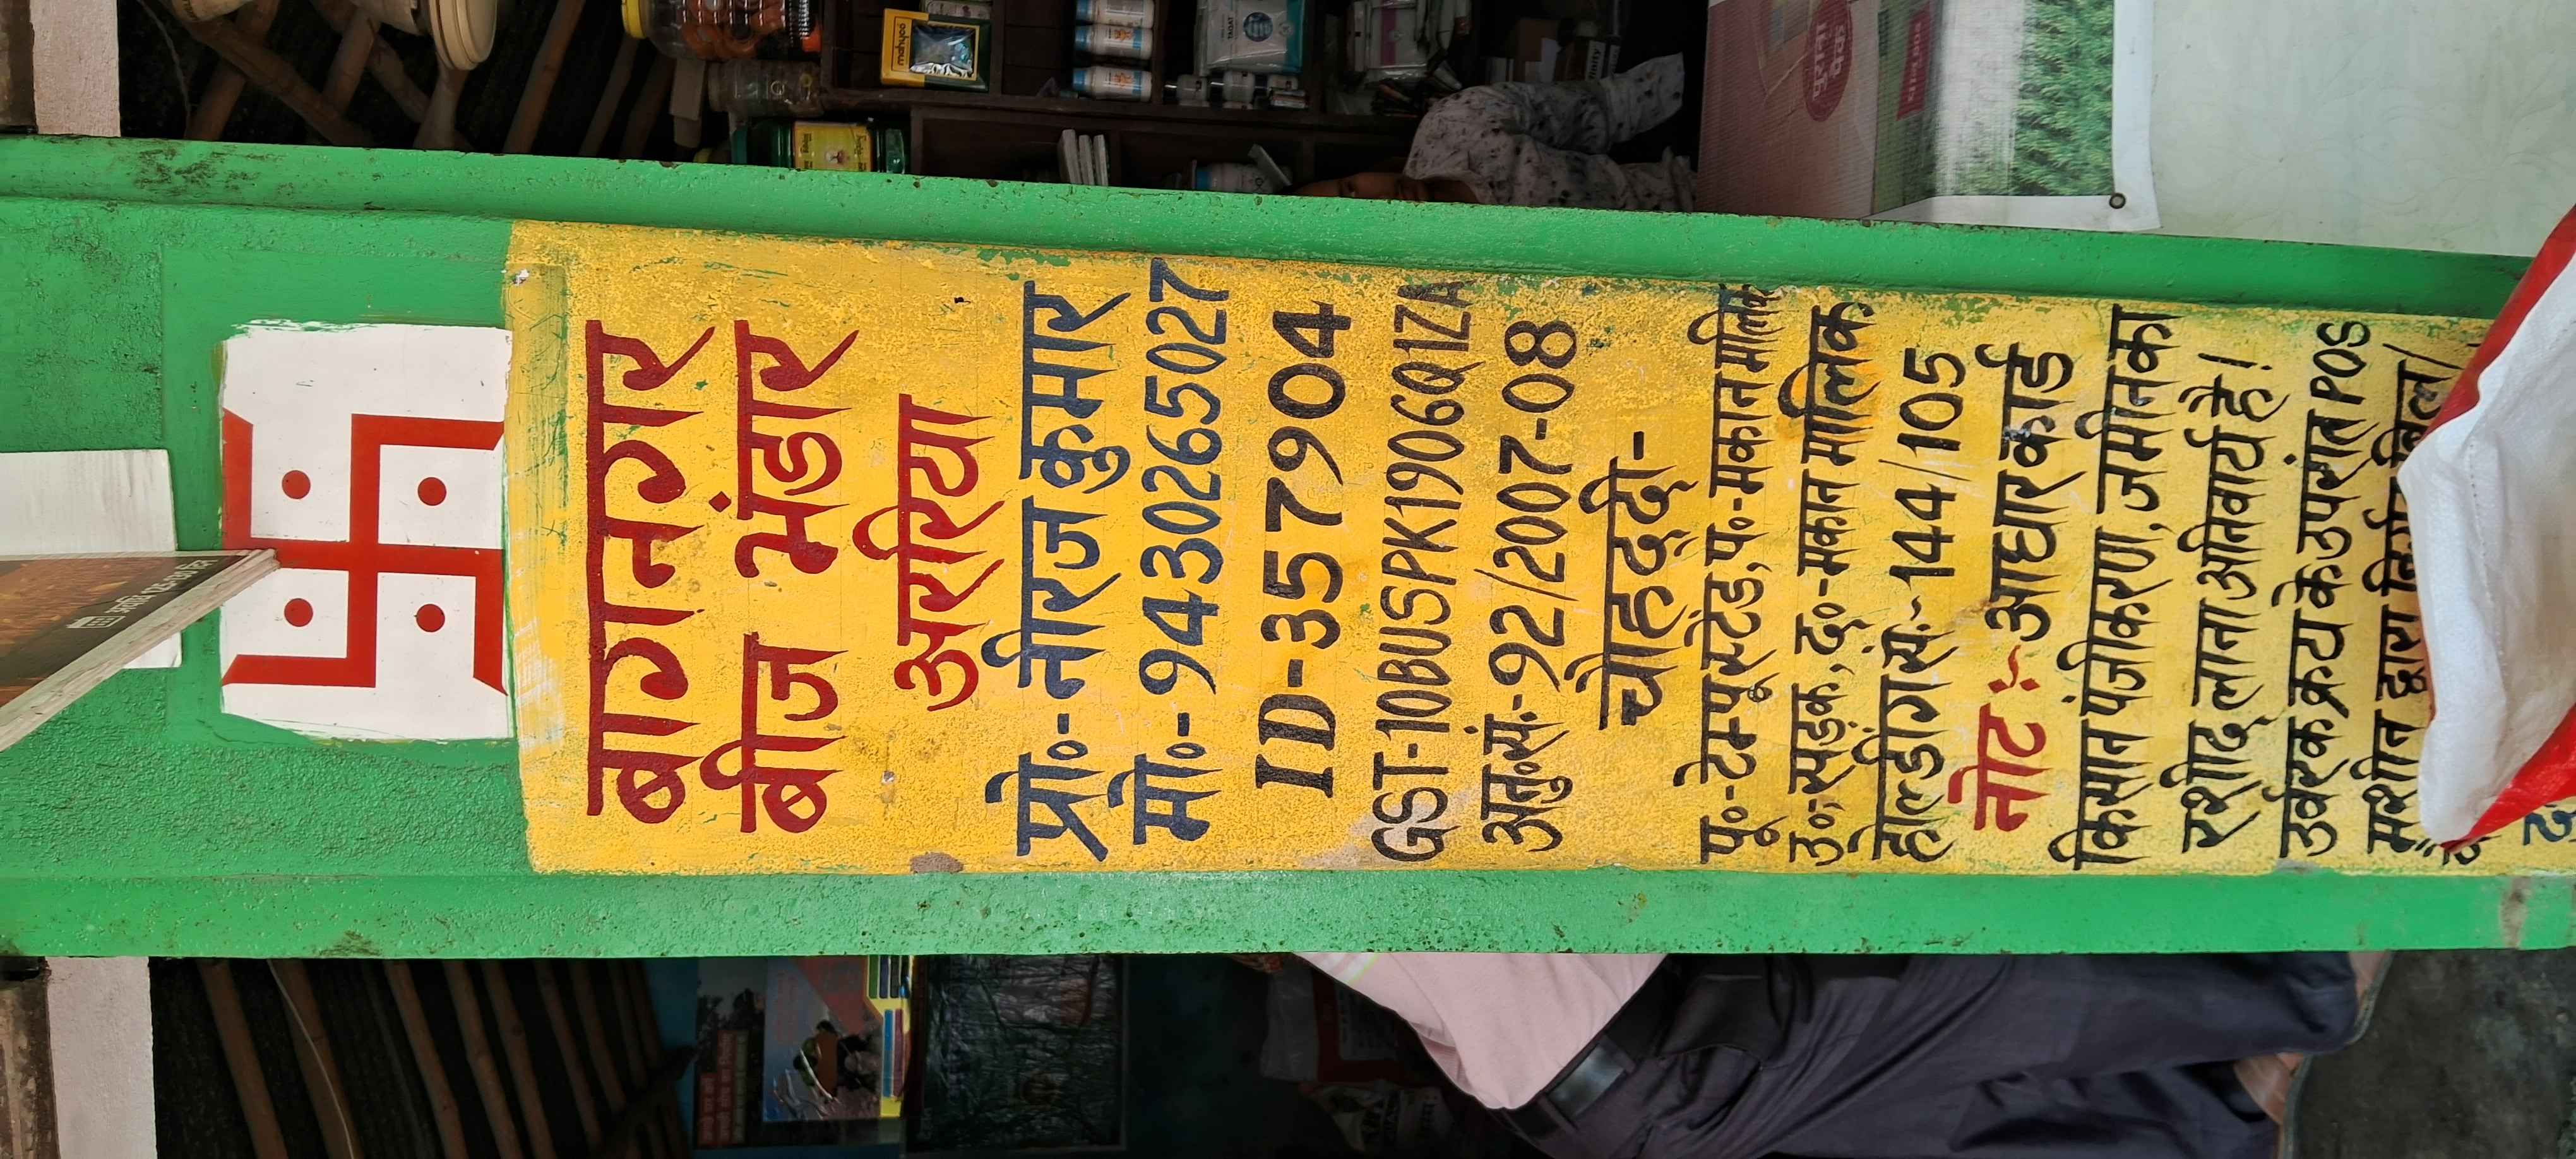 बागनगार
बीज भंडार
अररिया
प्रो०-नीरज कुमार
मो०-9430265027
ID-357904
GST-10BUSPK1906Q1ZA
अनु.सं.-92/2007-08
चौहद्दी-
पू०-टेम्पू स्टेंड, प०-मकान मालिक
उ०-सड़क, द०-मकान मालिक
होल्डींग सं.-144/105
नोट :- आधार कार्ड
किसान पंजीकरण, जमीन का
रशीद लाना अनिवार्य है।
उर्वरक क्रय के उपरांत POS
मशीन द्वारा बिल
mahyco